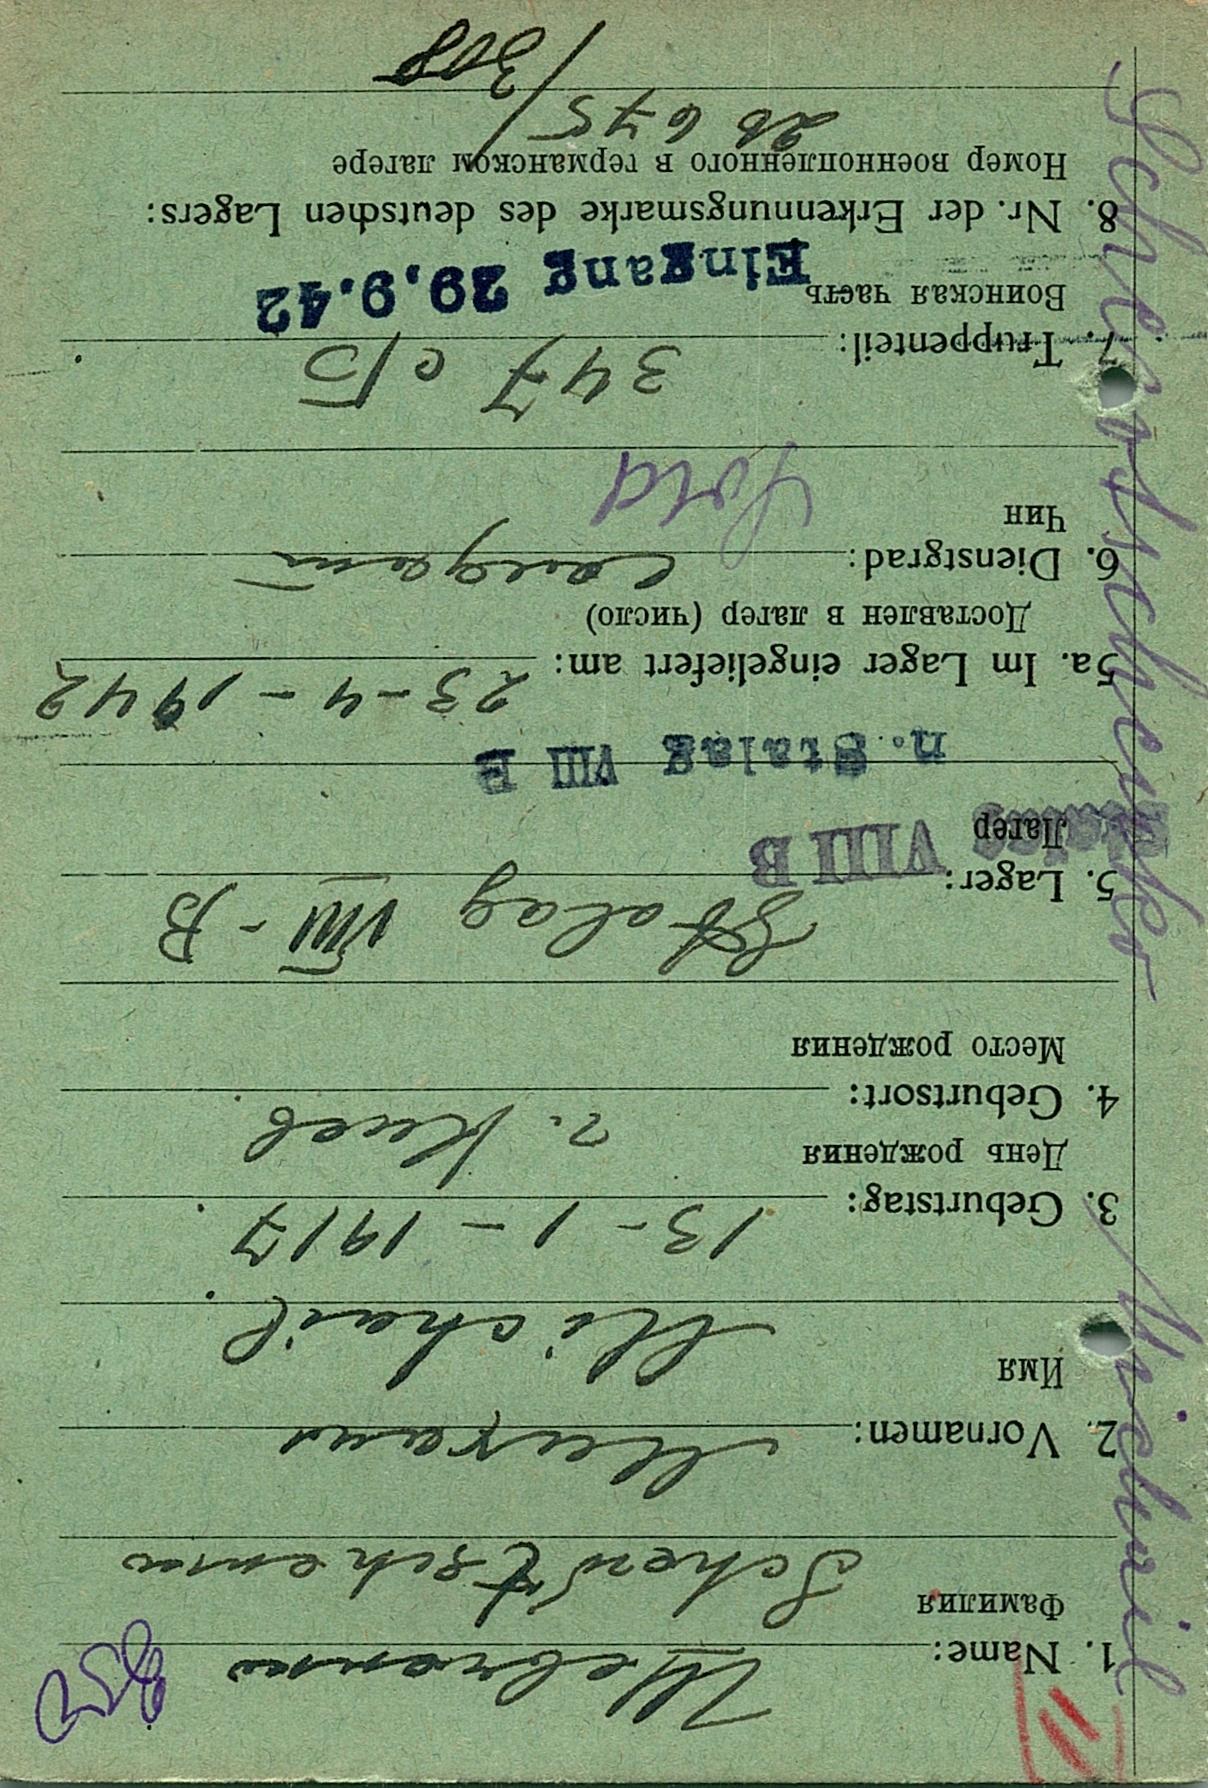 1. Name: Шевченко
Фамилия
Schewtschenko
2. Vornamen: Михаил
Имя
Michail
3. Geburtstag: 13-1-1917
День рождения
4. Geburtsort: г. Киев
Место рождения
5. Lager: Stalag VIII-B
Лагер
Stalag VIII B
n. Stalag VIII B
5a. Im Lager eingeliefert am: 23-4-1942
Доставлен в лагер (число)
6. Dienstgrad: солдат
Чин
Sold
7. Truppenteil: 347 с/б
Воинская часть
Eingang 29.9.42
8. Nr. der Erkennungsmarke des deutschen Lagers:
Номер военнопленного в германском лагере
26675/308
Schewtschenko Michail